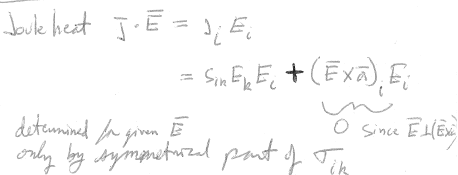 Joule heat j̄ · Ē = j_i E_i
= S_ik E_k E_i + (Ē x ā)_i E_i
0 since Ē ⊥ (Ē x ā)
determined for given Ē
only by symmetrized part of σ_ik